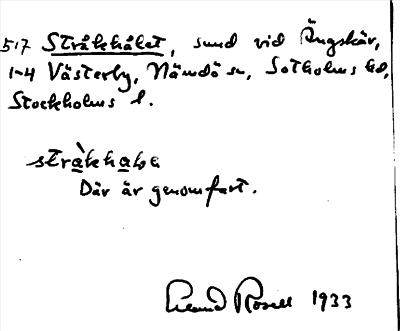 517 Stråkhålet, sund vid Ängskär,
1-4 Västerby, Nämdö sn, Sotholms hd,
Stockholms l.
stràkhalα
Där är genomfart.
Erland Rosell 1933